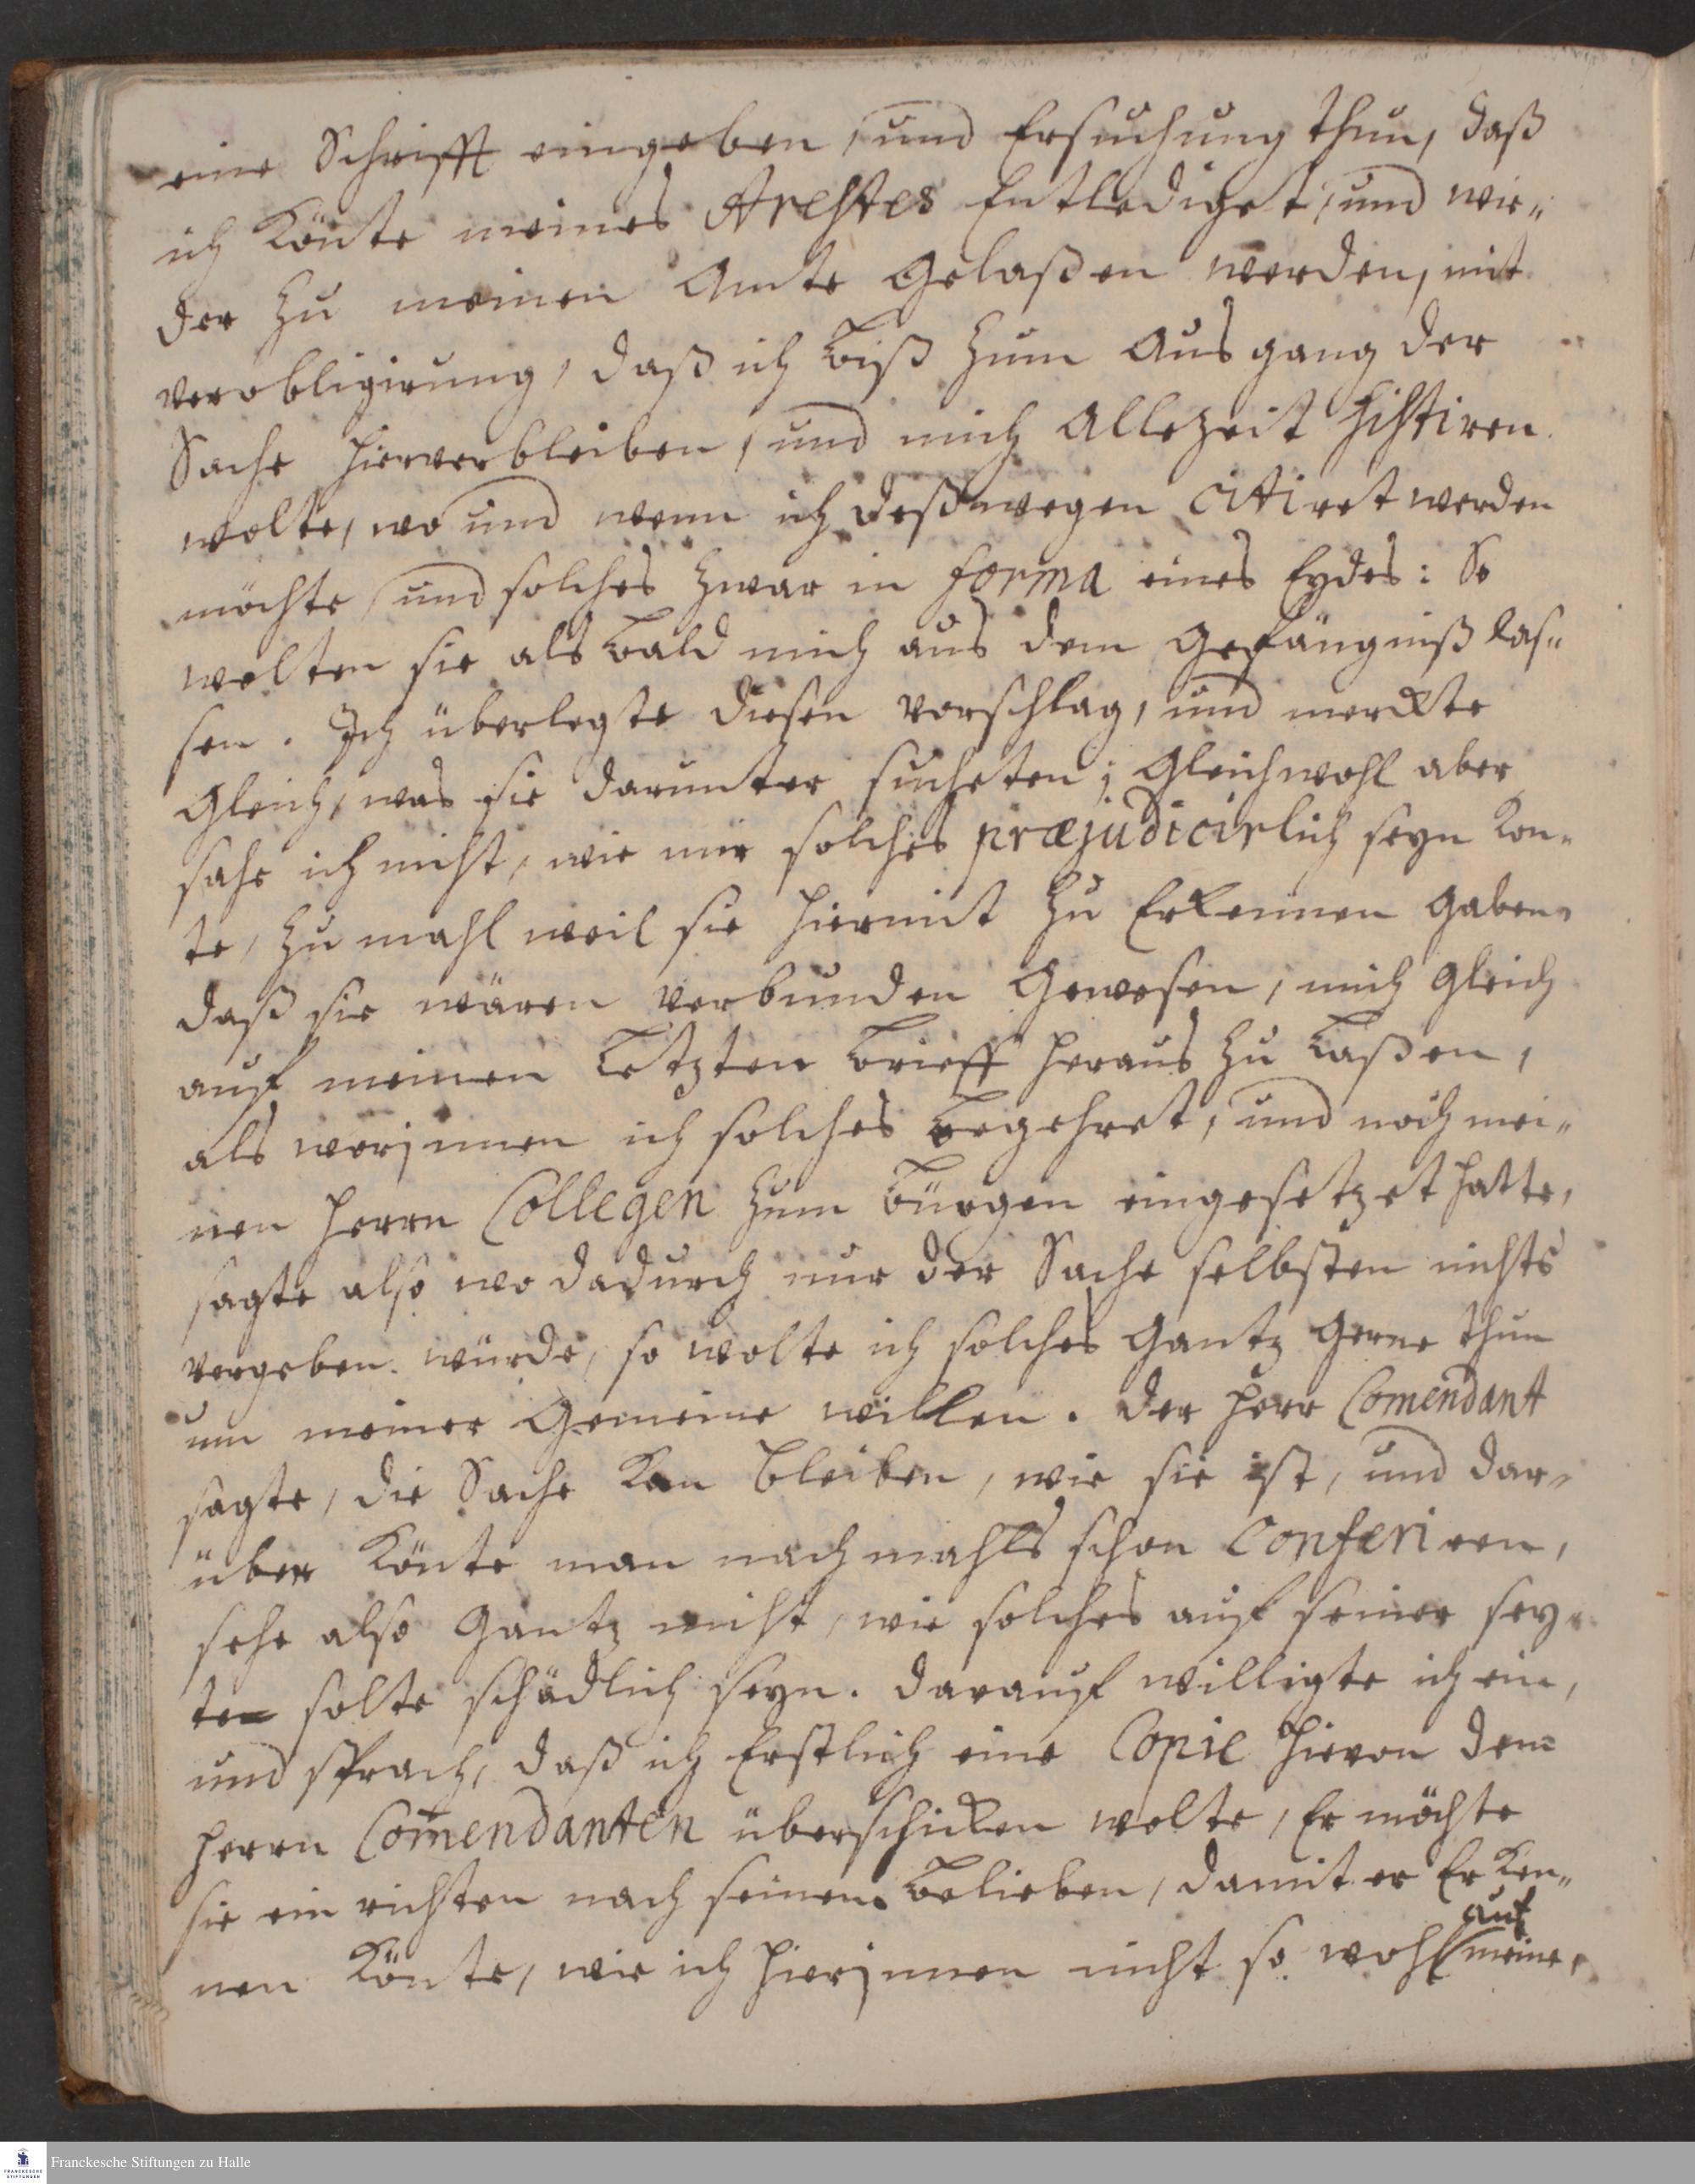 eine Schrifft eingeben, und Ersuchung thun, daß
ich könte meines Arestes Entlediget, und wie„
der zu meinen Amte gelaßen werden, mit
verobligirung, daß ich biß zum Ausgang der
Sache hierverbleiben, und mich allezeit sistiren
wolte, wo und wenn ich deßwegen citiret werden
möchte, und solches zwar in forma eines Eydes: So
wolten sie als bald mich aus dem Gefängniß las„
sen. Ich überlegte diesen vorschlag, und merckte
gleich, was sie darunter sucheten; gleichwohl aber
sahe ich nicht, wie mir solches præjudicirlich seyn kon„
te, zu mahl weil sie hiermit zu Erkennen gaben,
daß sie wären verbunden gewesen, mich gleich
auf meinen Letzten brieff heraus zu Laßen,
als worjnnen ich solches begehret, und noch mei„
nen Herrn Collegen zum bürgen eingesetzet hatte,
sagte also wo dadurch nur der Sache selbsten nichts
vergeben würde, so wolte ich solches gantz gerne thun
um meiner Gemeine willen. Der Herr Comendant
sagte, die Sache kan bleiben, wie sie ist, und dar„
über könte man nachmahls schon conferiren,
sehe also gantz nicht, wie solches auf seiner sey„
ten solte schädlich seyn. Darauf willigte ich ein,
und sprach, daß ich Erstlich eine Copie hievon dem
Herrn Com̄endanten überschicken wolte, Er möchte
sie ein richten nach seinem belieben, damit er Erken„
auf
nen könte, wie ich hierjnnen nicht so wohl meine,
Franckesche Stiftungen zu Halle